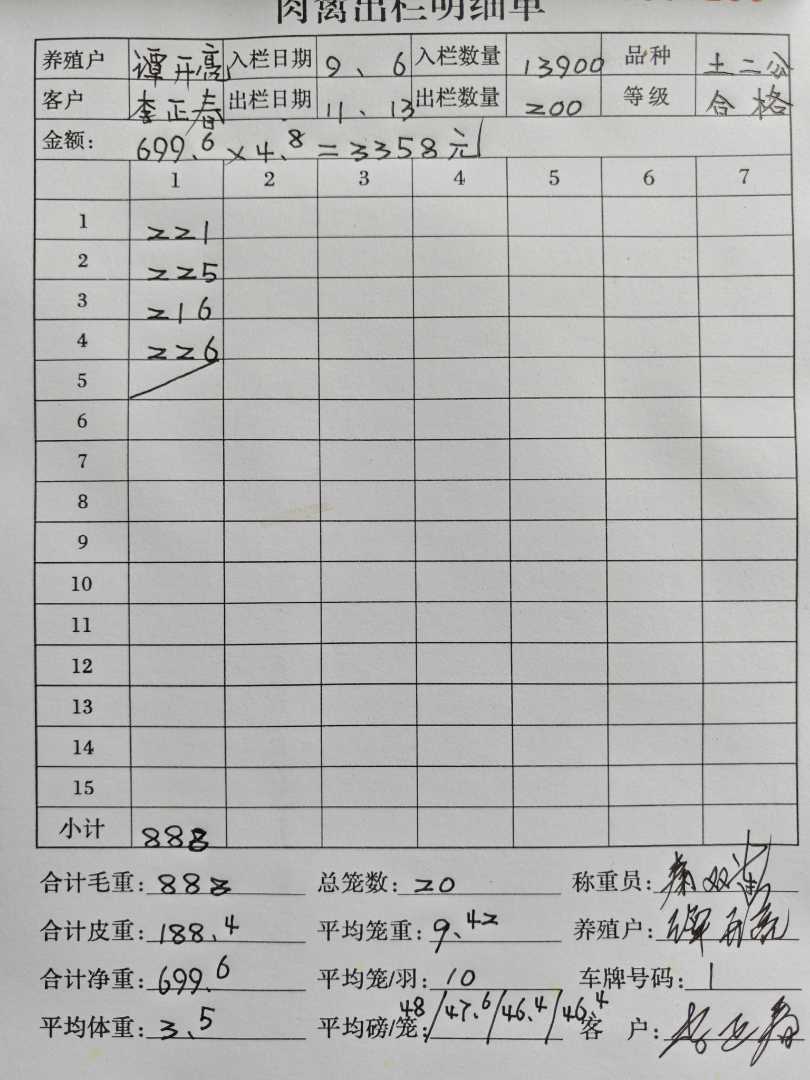 肉禽出栏明细单
养殖户 谭开亮 入栏日期 9、6 入栏数量 13900 品种 土二公
客户 李正春 出栏日期 11、13 出栏数量 200 等级 合格
金额: 699.6×4.8=3358元
1 2 3 4 5 6 7
1 221
2 225
3 216
4 226
5
6
7
8
9
10
11
12
13
14
15
小计 888
合计毛重: 888 总笼数: 20 称重员:
合计皮重: 188.4 平均笼重: 9.42 养殖户: 谭开亮
合计净重: 699.6 平均笼/羽: 10 车牌号码: 1
平均体重: 3.5 平均磅/笼: 48/47.6/46.4/46.4 客 户: 李正春